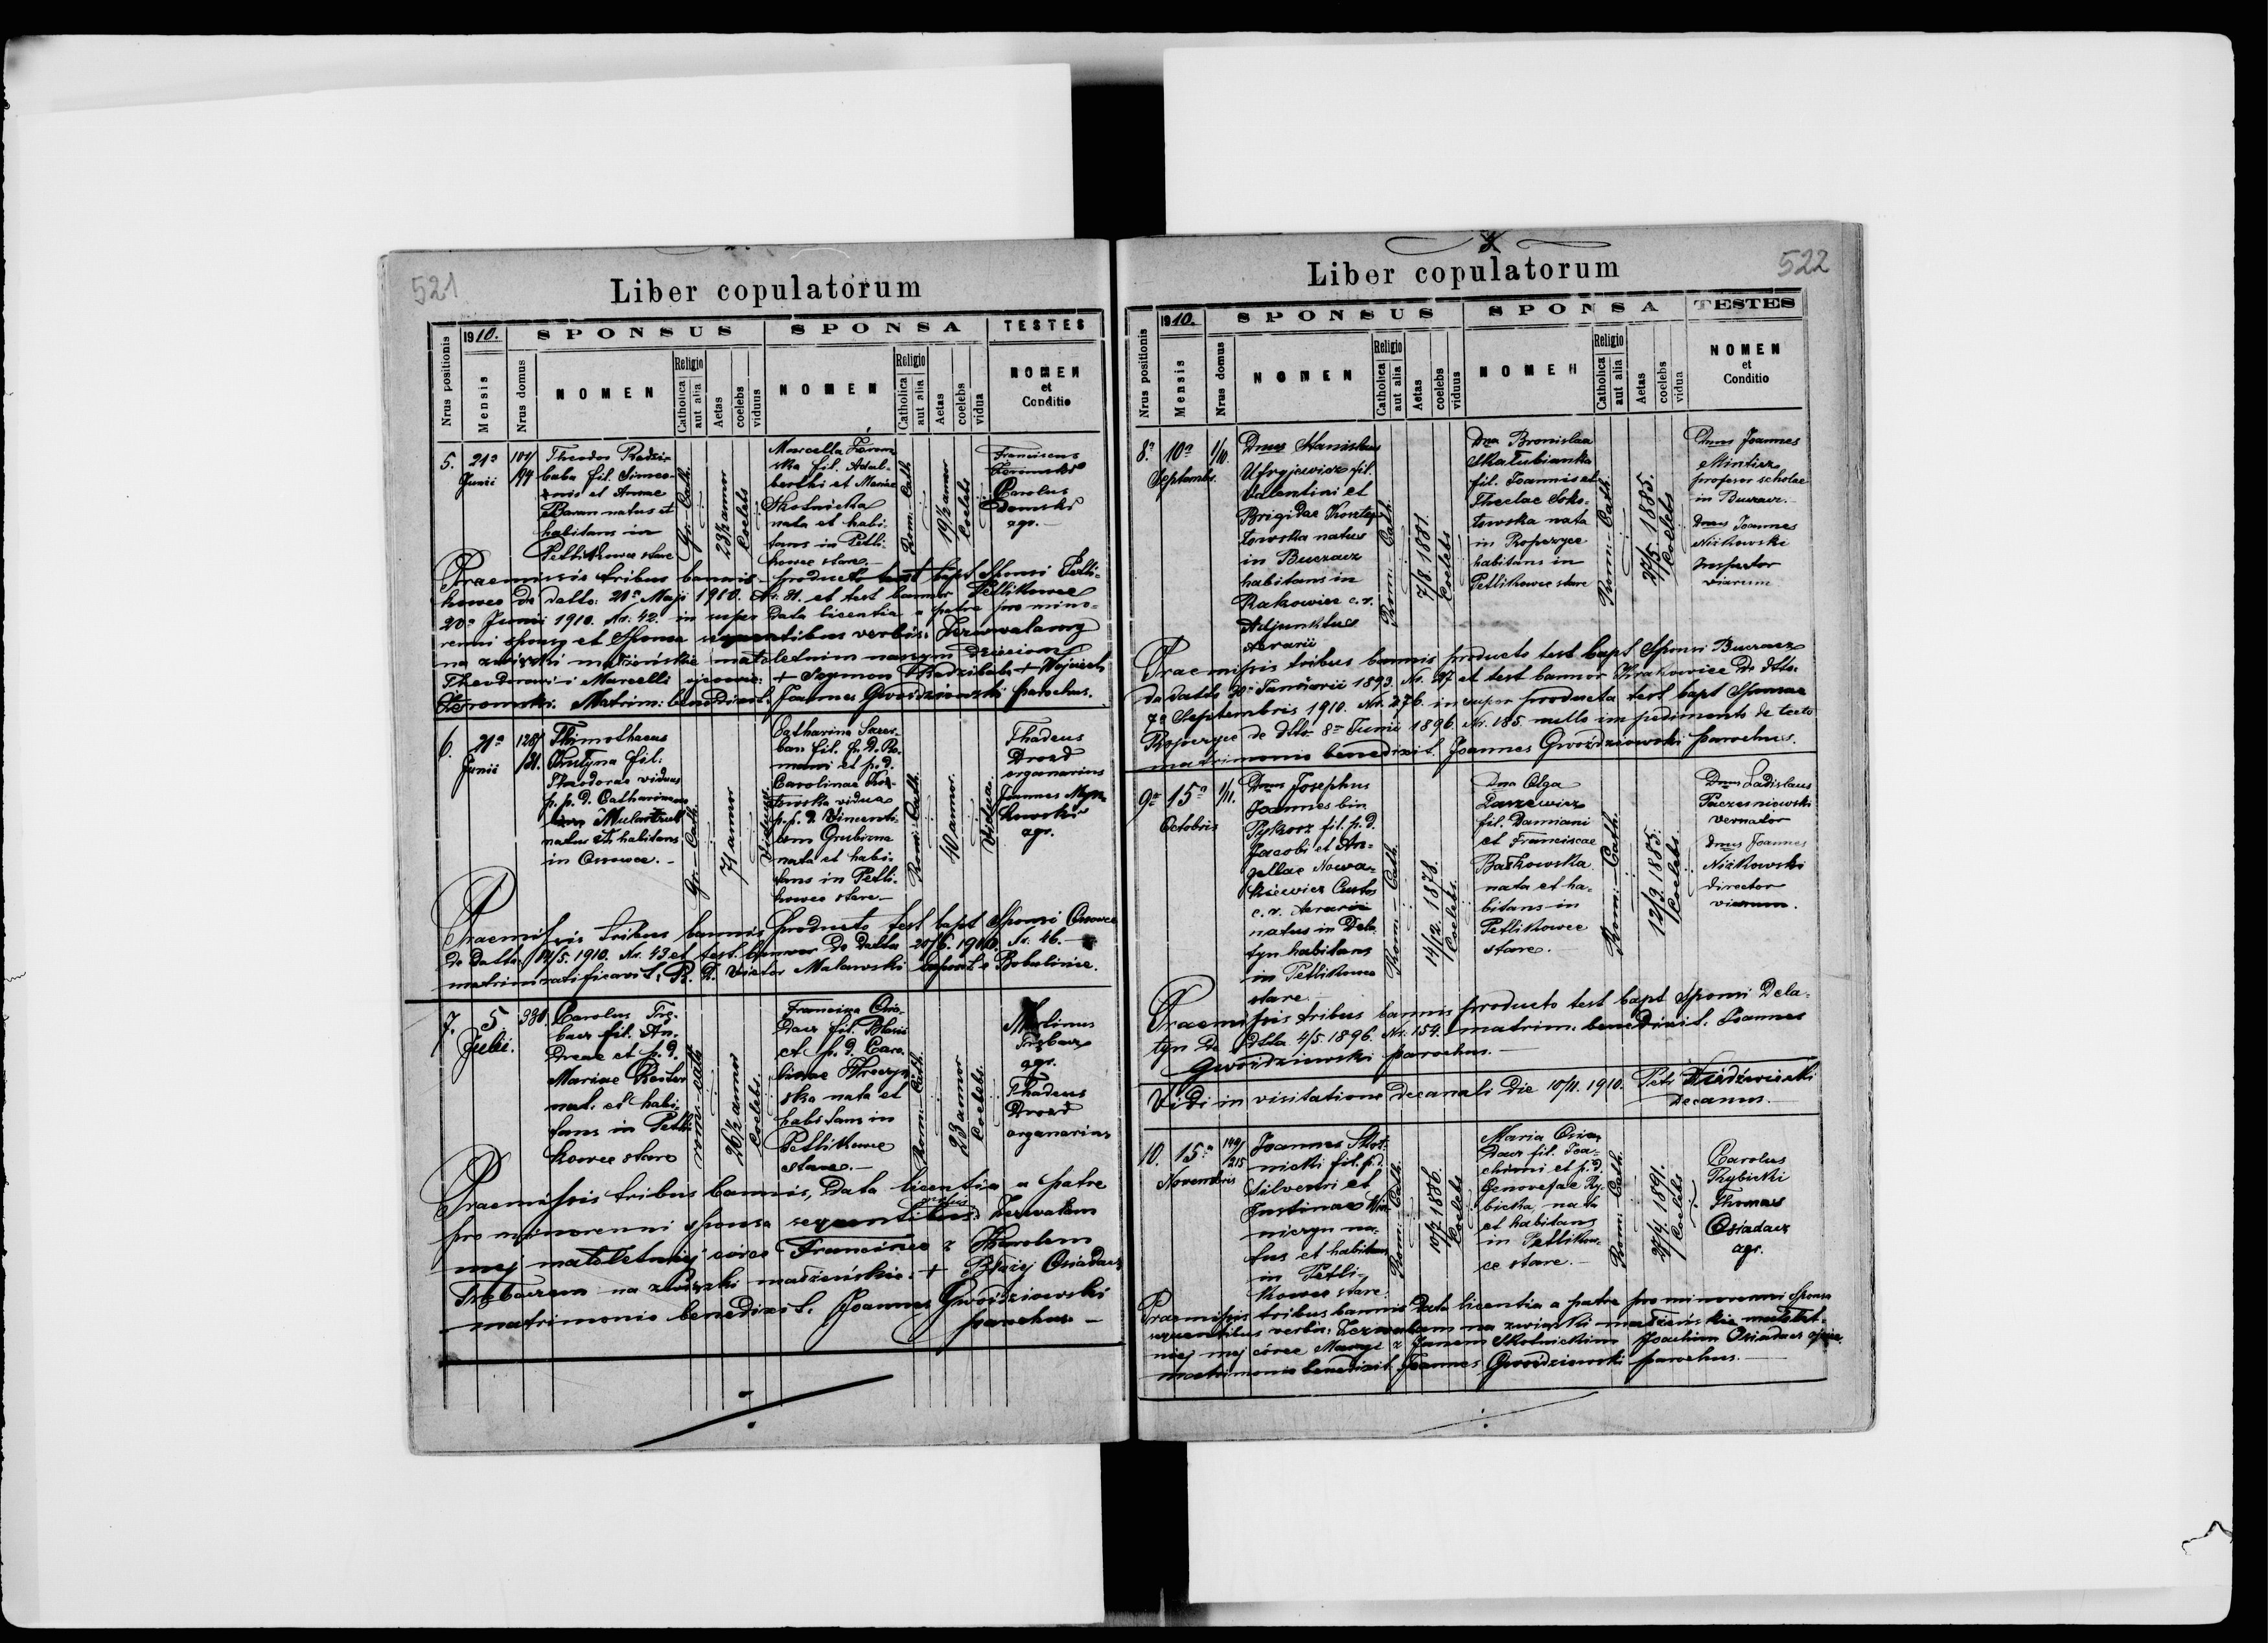 521
Liber copulatorum
1910.
SPONSUS
SPONSA
TESTES
Nrus positionis
Mensis
Nrus domus
NOMEN
Religio
Catholica
aut alia
Aetas
coelebs
viduus
NOMEN
Religio
Catholica
aut alia
Aetas
coelebs
vidua
NOMEN
et
Conditio
5.
21a
Junii
101/
Theodor Radzi-
baba fil. Simeo-
nis et Annae
Baran natus et
habitans in
Petlikowce stare
Gr.-Cath.
23½ annor
Coelebs
Marcella
fil. Adal-
berthi et Mariae
Skotnicka
nata et habi-
tans in Petli-
kowce stare.-
Rom.-Cath.
19½ annor
Coelebs
Franciscus
Carolus
agr.-
Praemissis tribus bannis producto test bapt Sponsi Petli-
kowce de datto: 21a Maji 1910. Nr. 81. et test bannor Petlikowce
20a Junii 1910. Nr. 42. in super data licentia a patre pro mino-
renni sponso et Sponsa sequentibus verbis: Zezwalamy
na związki małżeńskie małoletnim naszym dzieciom
Theodorowi i Marcelli ojcowie: + Szymon Radzibaba + Wojciech
Matrim: benedixit. Joannes Gwoździowski parochus.
6.
21a
Junii
128/
Thimotheus
fil.
Theodorae viduus
p. p. d. Catharinam
natus et habitans
in Ossowce.-
Gr.-Cath.
71 annor
Viduus.
Catharina
fil. p. d. Ro-
mani et p. d.
Carolinae
vidua
p. p. d. Vincenti
nata et habi-
tans in Petli-
kowce stare.-
Rom.-Cath.
40 annor.
Vidua.
Thadeus
Drozd
organarius
Joannes
agr.
Praemissis tribus bannis producto test bapt Sponsi Ossowce
de datto 1910. Nr. 43 et test. bannor de datto 20/6. 1910. Nr. 46.-
matrim ratificavit. R. D. Victor Malawski Bobulince.
7.
5
Julii.
330.
Carolus Trę-
bacz fil. An-
dreae et p. d.
Mariae
nat. et habi-
tans in Petli-
kowce stare
rom.-cath.
26½ annor
Coelebs.
Francisca Osia-
dacz fil. Blasii
et p. d. Caro-
linae
nata et
habitans in
Petlikowce
stare.-
Rom.-Cath.
23 annor
Coelebs.
Martinus
Trębacz
agr.
Thadeus
Drozd
organarius
Praemissis tribus bannis, data licentia a patre
pro minorenni sponsa sequentibus: Zezwalam
mej małoletniej córce Francisce z Karolem
Trębaczem na związki małżeńskie: + Błażej Osiadacz
matrimonio benedixit. Joannes Gwoździowski
parochus -
522
Liber copulatorum
1910.
SPONSUS
SPONSA
TESTES
Nrus positionis
Mensis
Nrus domus
NOMEN
Religio
Catholica
aut alia
Aetas
coelebs
viduus
NOMEN
Religio
Catholica
aut alia
Aetas
coelebs
vidua
NOMEN
et
Conditio
8a
10a
Septembr.
Dnus Stanislaus
fil.
Valentini et
Brigidae
natus
in Buczacz
habitans in
Rakowiec c. r.
Adjunktus
Aerarii
Rom.-Cath.
7/8. 1881.
Coelebs
Dna Bronislaa
Skałubianka
fil. Joannis et
Theclae Soko-
łowska nata
in Ropczyce
habitans in
Petlikowce stare
Rom.-Cath.
27/5. 1885.
Coelebs
Dnus Joannes
profesor scholae
in Buczacz.-
Dnus Joannes
Niżkowski
Inspector
viarum
Praemissis tribus bannis producto test bapt Sponsi Buczacz
de datto 20a Januarii 1893. Nr. 27 et test bannor de dtto.
7a Septembris 1910. Nr. 276. in super producta test bapt Sponsae
Ropczyce de dtto 8a Junii 1896. Nr. 185. nullo impedimento detecto
matrimonio benedixit Joannes Gwoździowski parochus.
9a
15a
Octobris
1/11.
Dnus Josephus
Joannes bin.
fil. p. d.
Jacobi et An-
gellae Nowa-
kiewicz Custos
c. r. Aerarii
natus in Dela-
tyn habitans
in Petlikowce
stare.
Rom.-Cath.
14/12. 1878.
Coelebs.
Dna Olga
fil. Damiani
et Franciscae
nata et ha-
bitans in
Petlikowce
stare.
Rom.-Cath.
12/9. 1885.
Coelebs.
Dnus Ladislaus
Dnus Joannes
Niżkowski
director
viarum.
Praemissis tribus bannis producto test bapt Sponsi Dela-
tyn de dtto 4/5. 1896. Nr. 154. matrim. benedixit. Joannes
Gwoździowski parochus.-
Vidi in visitatione decanali die 10/11. 1910. Petr
Decanus.-
10.
15a
Novembris
149/
215
Joannes Skot-
nicki fil. p. d.
Silvestri et
Justinae
na-
tus et habitans
in Petli-
kowce stare.
Rom.-Cath.
10/7 1886.
Coelebs
Maria Osia-
dacz fil. Joa-
chimi et p. d.
Genovefae Ry-
bicka, nata
et habitans
in Petlikow-
ce stare.-
Rom.-Cath.
27/4. 1891.
Coelebs
Carolus
Rybicki
Thomas
Osiadacz
agr.
Praemissis tribus bannis data licentia a patre pro minorenni sponsa
sequentibus verbis: Zezwalam na związki małżeńskie małolet-
niej mej córce Maryi z Janem Skotnickim Joachim Osiadacz ojciec.
matrimonio benedixit Joannes Gwoździowski parochus.-